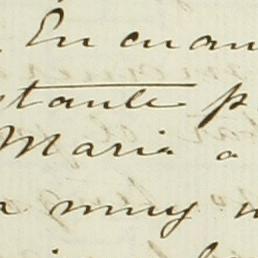 En cuan
stante p
Maria a
muy